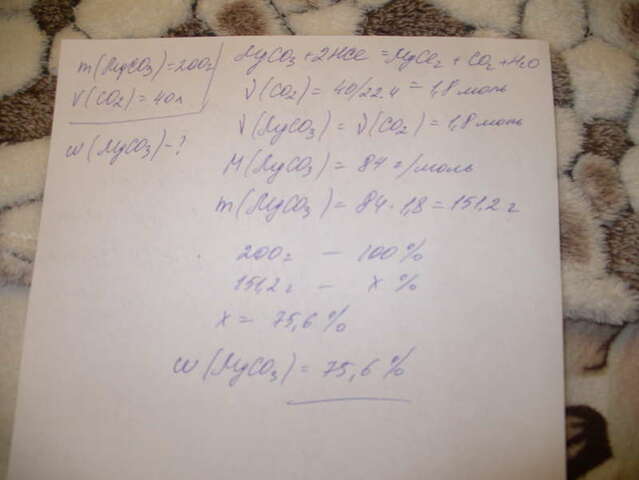 m(MgCO₃)=200г
V(CO₂)=40л
w(MgCO₃)-?
MgCO₃+2HCl=MgCl₂+CO₂+H₂O
ν(CO₂)=40/22.4=1,8моль
ν(MgCO₃)=ν(CO₂)=1,8моль
M(MgCO₃)=84г/моль
m(MgCO₃)=84·1,8=151.2г
200г - 100%
151,2г - x%
x=75,6%
w(MgCO₃)=75,6%